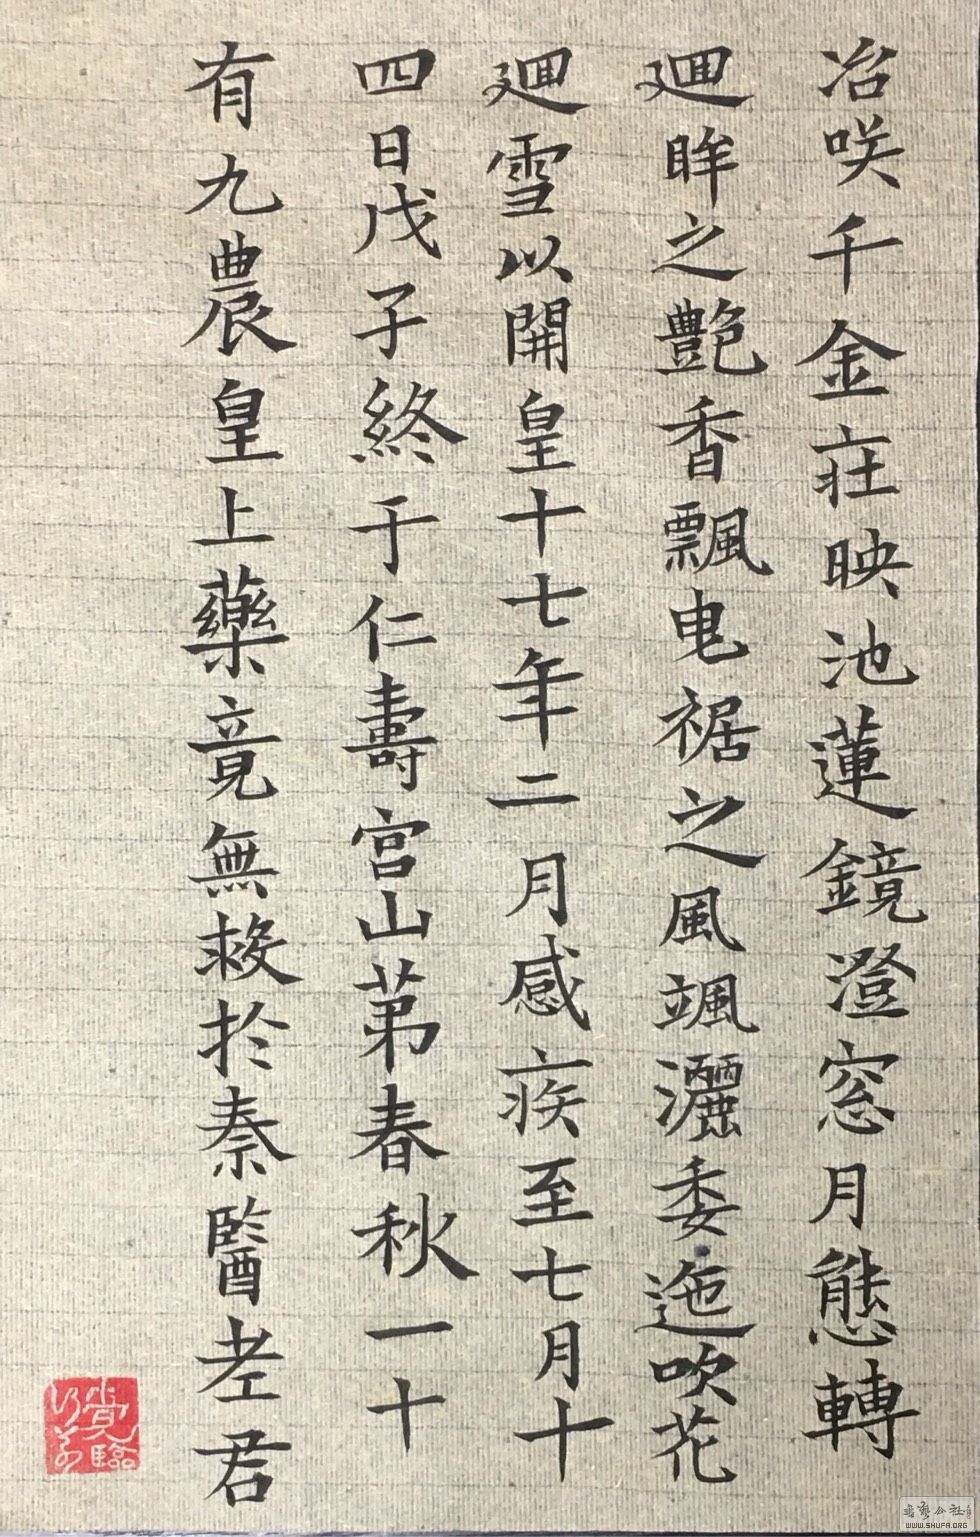 冶咲千金莊映池蓮鏡澄窓月態轉
迴眸之艷香飄曳裾之風颯灑委迤吹花
迴雪以開皇十七年二月感疾至七月十
四日戊子終于仁壽宮山苐春秋一十
有九農皇上藥竟無救於秦醫老君
WWW.SHUFA.ORG